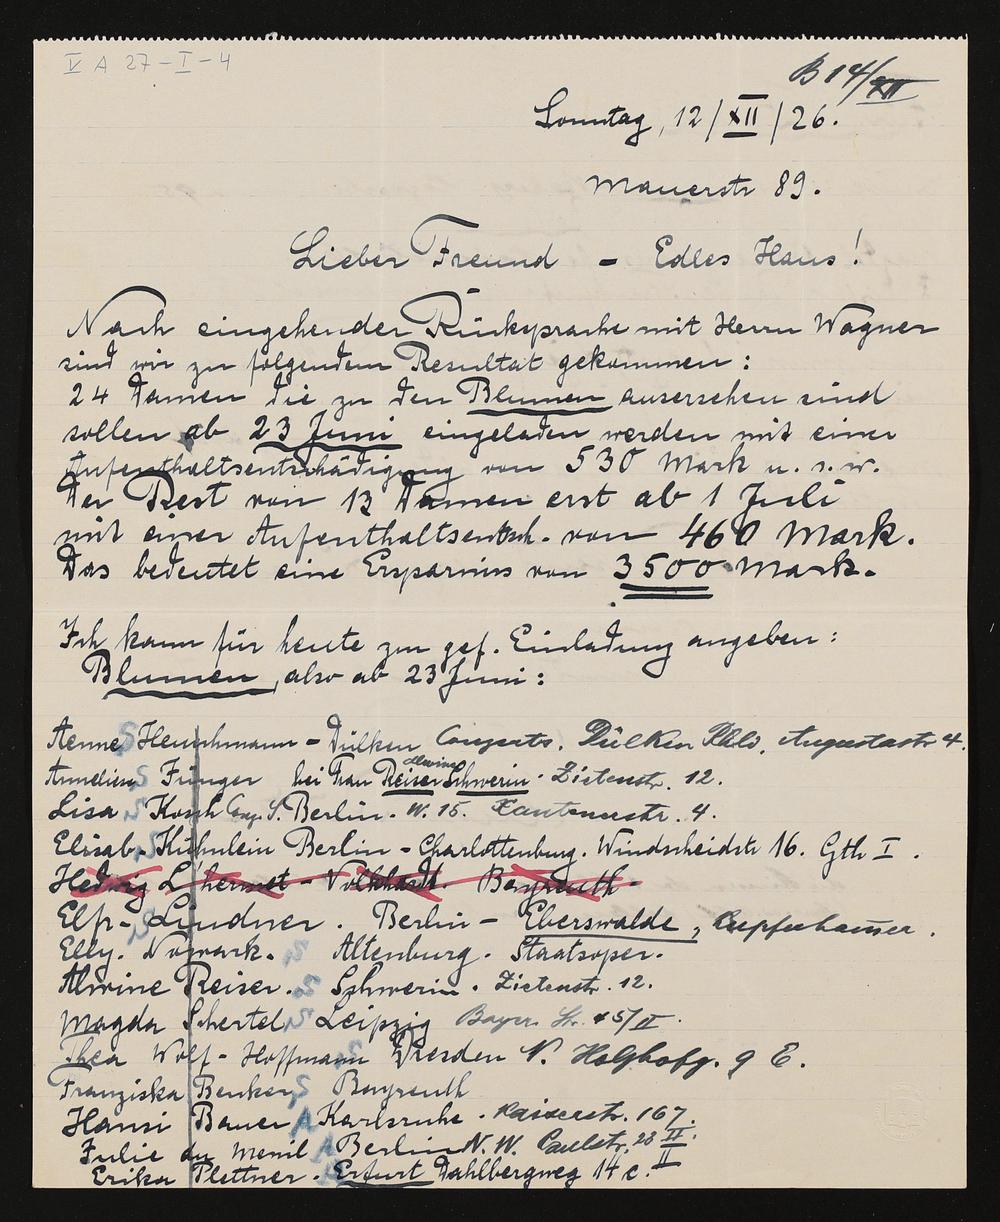 V A 27-I-4
B 14/XII
Sonntag, 12/XII/26.
Mauerstr 89.
Lieber Freund - Edles Haus!
Nach eingehender Rücksprache mit Herrn Wagner
sind wir zu folgendem Resultat gekommen:
24 Damen die zu den Blumen ausersehen sind
sollen ab 23 Juni eingeladen werden mit einer
Aufenthaltsentschädigung von 530 Mark u. s. w.
Der Rest von 13 Damen erst ab 1 Juli
mit einer Aufenthaltsentsch. von 460 Mark.
Das bedeutet eine Ersparniss von 3500 Mark.
Ich kann für heute zur gef. Einladung angeben:
Blumen, also ab 23 Juni:
Aenne S - Dülken Dülken Rhld, Augustastr 4.
Annelies S bei Frau Alwine Reiser Schwerin. Zietenstr. 12.
Lisa S Kosch Berlin. W. 15. Xantenerstr. 4.
Elisab. S Kühnlein Berlin - Charlottenburg. Windscheidstr 16. Gth I.
Hedwig - Volkhardt. Bayreuth -
Elfr. S Lindner. Berlin - Eberswalde, Kupferhammer.
Elly. Nowark. S Altenburg. Staatsoper.
Alwine Reiser. S Schwerin. Zietenstr. 12.
Magda Schertel S Leipzig Bayer. Str. 45/II.
Thea Wolf - Hoffmann S Dresden N. Holzhofg. 9 E.
Franziska Benker S Bayreuth
Hansi Bauer A Karlsruhe. Kaiserstr. 167.
Julie du Menil A Berlin N.W. Paulstr. 28 II.
Erika Plettner. Erfurt Dahlbergweg 14 c. II